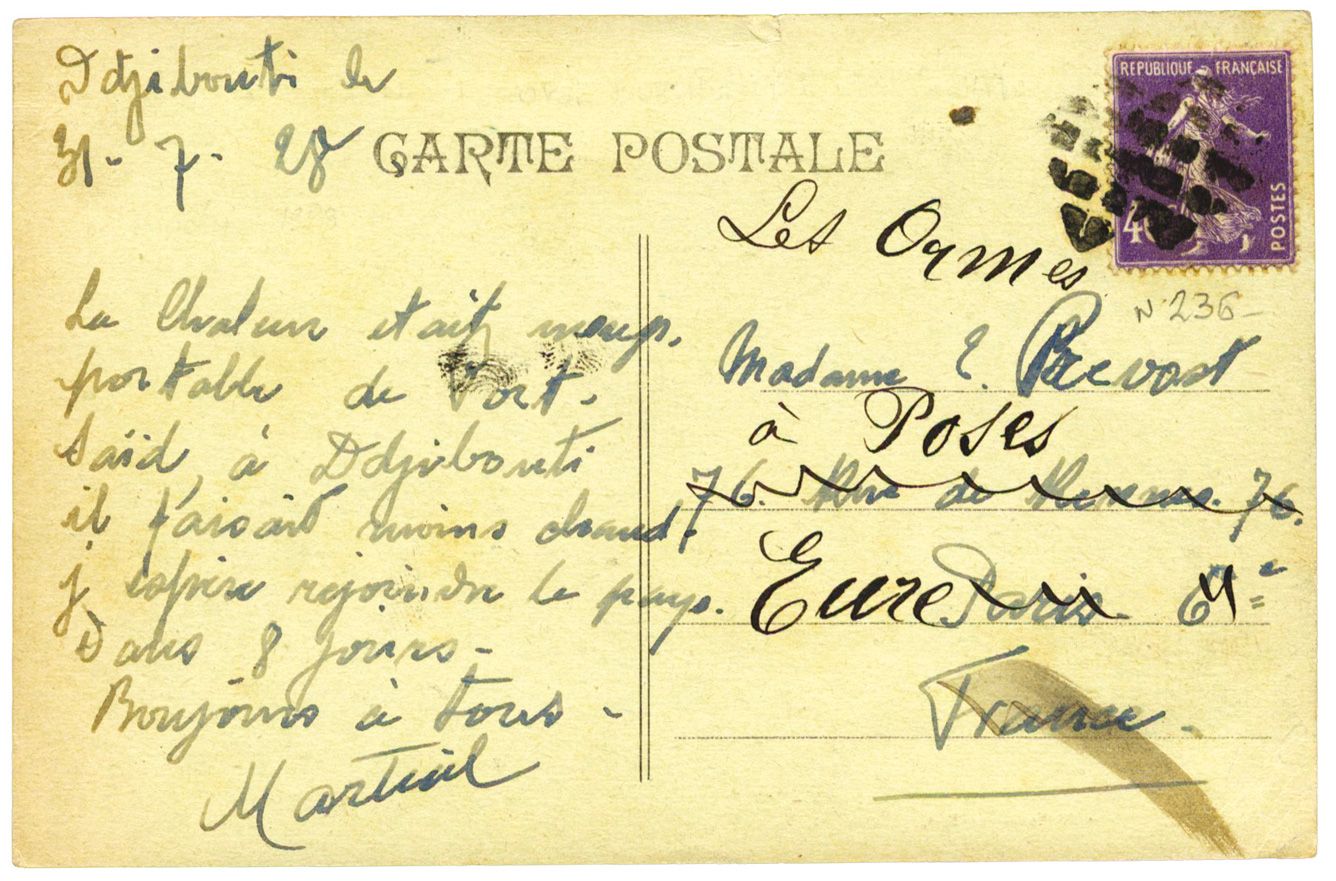 Ddjibouti le
31- 7- 28
CARTE POSTALE
La Chaleur etait insup.
portable de Port.
Saïd, à Ddjibouti
il faisait moins chaud.
j espère rejoindre le pays.
Dans 8 jours-
Boujours à tous -
Martial
REPUBLIQUE FRANÇAISE
POSTES
40
N 236-
Les Ormes
Madame E. Prevost
à Poses
76. de 76.
Eure Paris. 6
France.